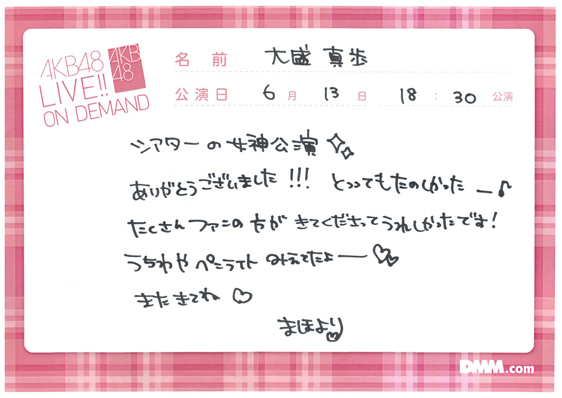 AKB48
LIVE!!
ON DEMAND
AKB
48
名前 大盛 真歩
公演日 6月 13日 18:30 公演
シアターの女神公演
ありがとうございました!!! とっってもたのしかったー♪
たくさんファンの方がきてくださってうれしかったです!
うちわやペンライトみえてたよー♡
またきてね♡
まほより
DMM.com